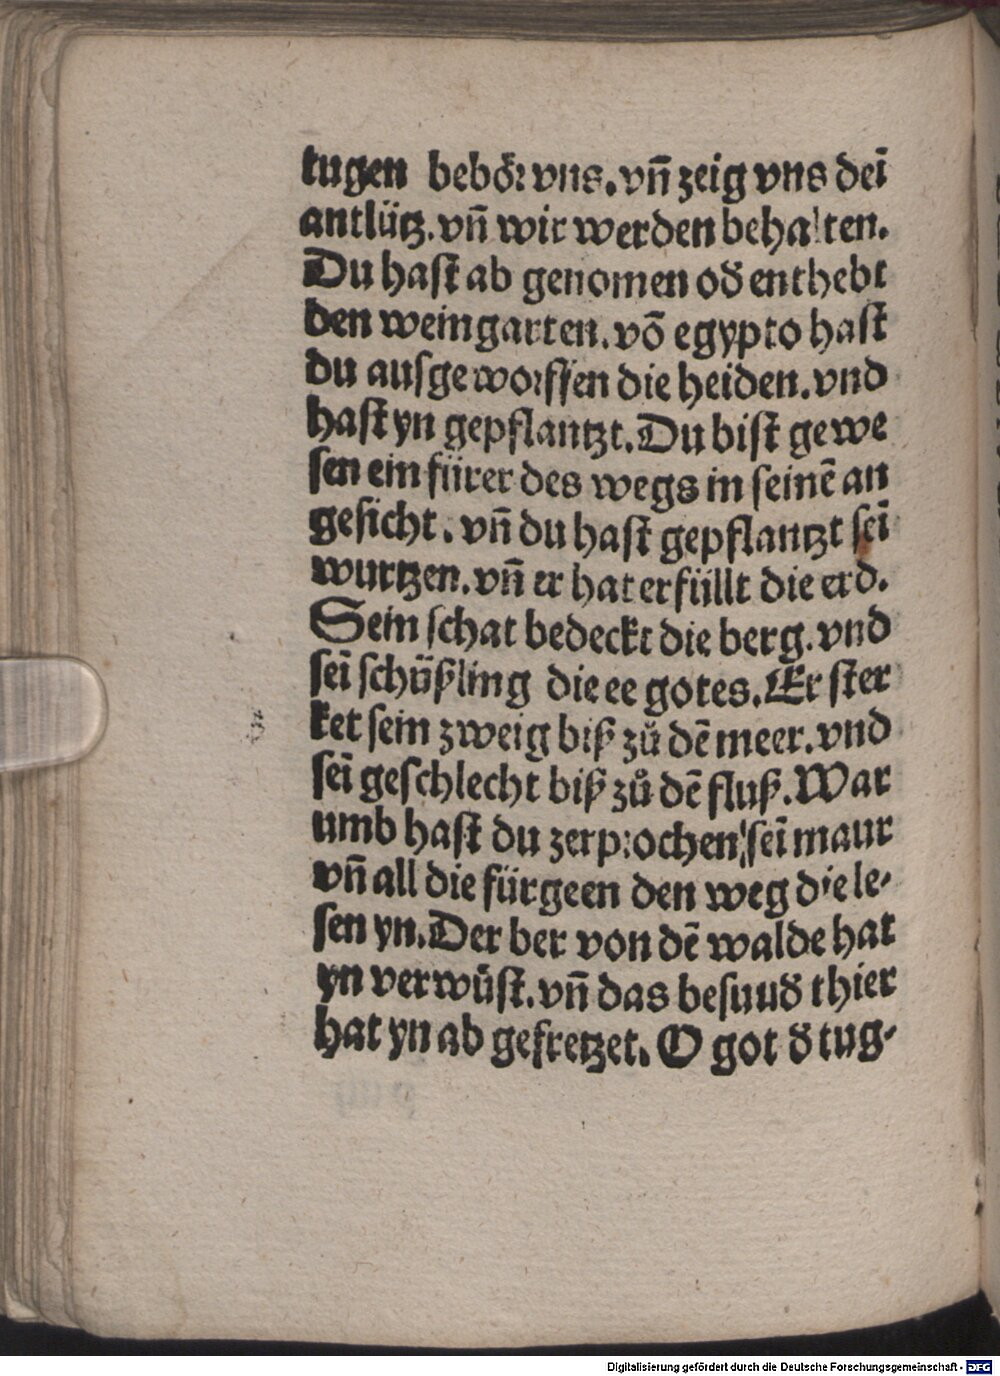 tugen bebör vns. vn̄ zeig vns deī
antlütz. vn̄ wir werden behalten.
Du hast ab genomen oď enthebt
den weingarten. vō egypto hast
du ausgeworffen die heiden. vnd
hast yn gepflantzt. Du bist gewe
sen ein fürer des wegs in seinē an
gesicht. vn̄ du hast gepflantzt sei
wurtzen. vn̄ er hat erfüllt die erd.
Sein schat bedeckt die berg. vnd
seī schüßling die ee gotes. Er ster
ket sein zweig biß zů dē meer. vnd
seī geschlecht biß zů dē fluß. War
umb hast du zerprochen seī maur
vn̄ all die fürgeen den weg die le-
sen yn. Der ber von dē walde hat
yn verwüst. vn̄ das besuuď thier
hat yn ab gefretzet. O got ď tug-
Digitalisierung gefördert durch die Deutsche Forschungsgemeinschaft - DFG